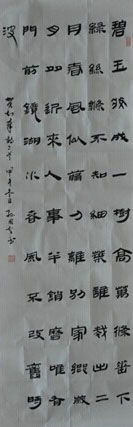 碧玉妝成一樹高萬條垂下
綠絲絛不知細葉誰裁出二
月春風似剪刀離別家鄉歲
月多近來人事半銷磨唯有
門前鏡湖水春風不改舊時
波
賀知章詩二首 甲午